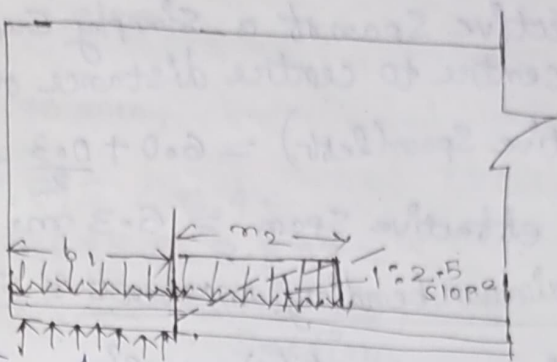 b1
n2
1:2.5
slope